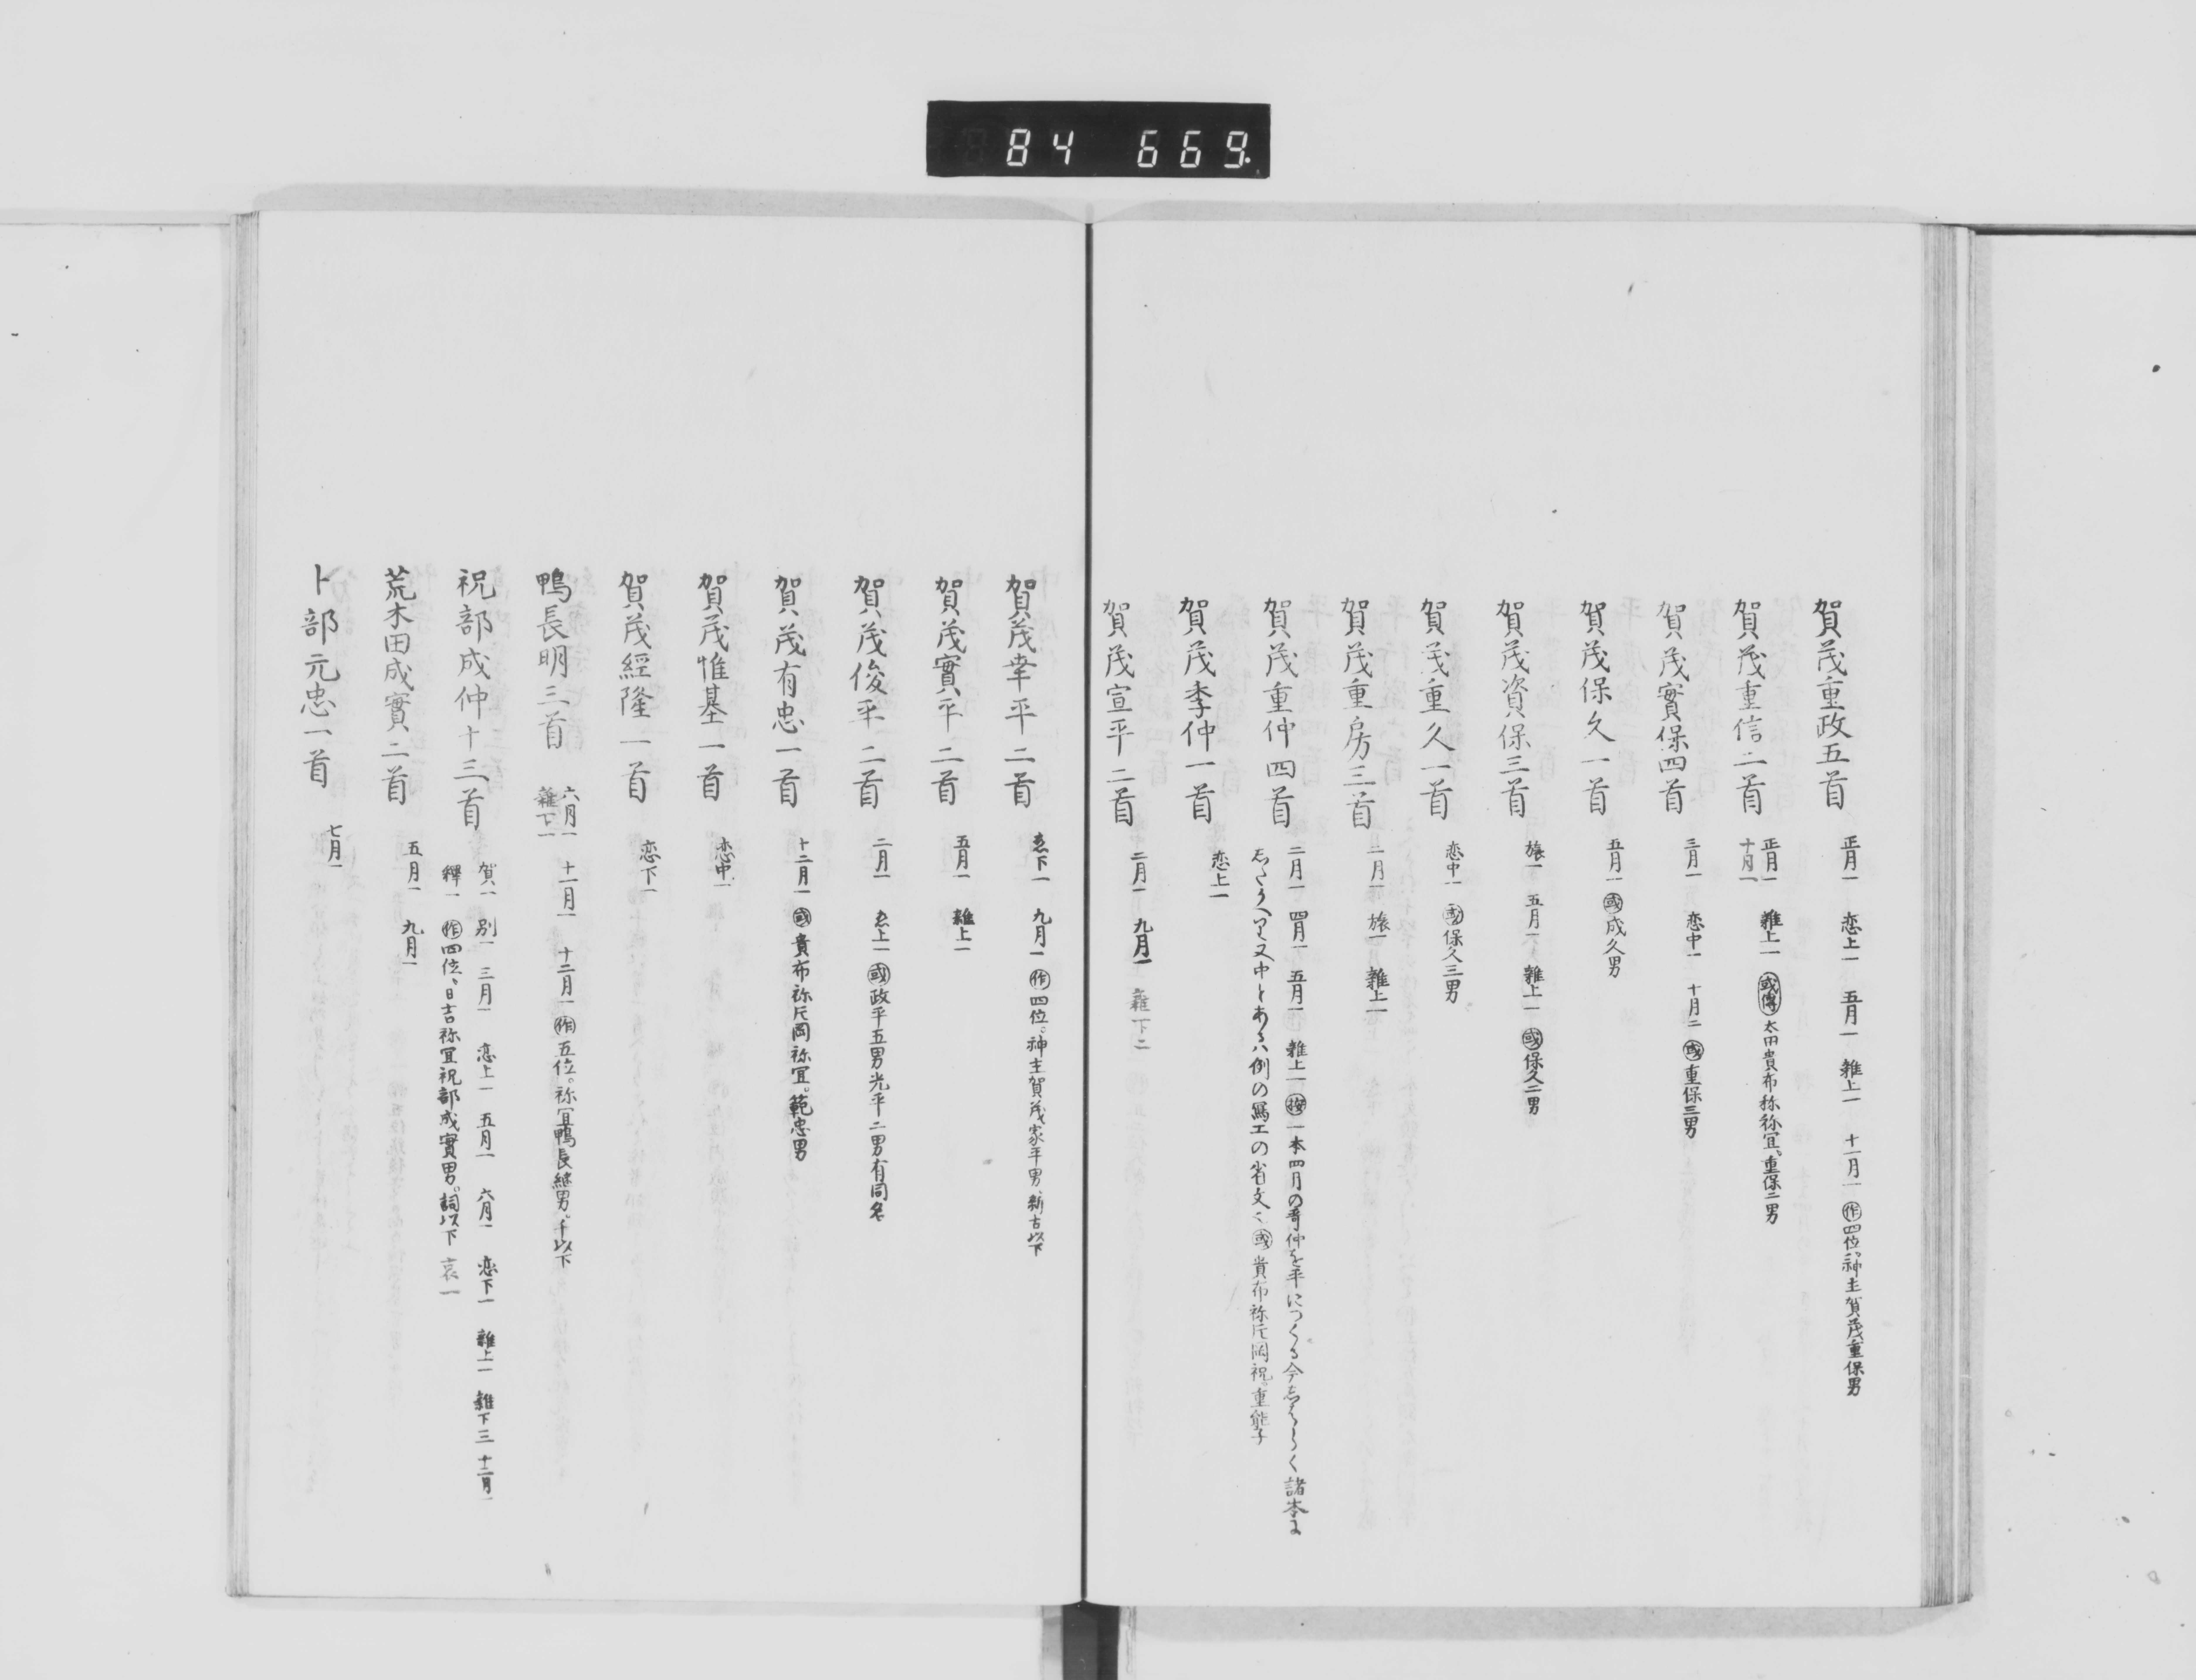 84 669.
賀茂重政五首 正月一 恋上一 五月一 雜上一 十一月一 作 四位、神主賀茂重保男
賀茂重信二首 正月一 雜上一 國傳 太田貴布祢祢冝、重保二男
十月一
賀茂實保四首 三月一 恋中一 十月二 國 重保三男
賀茂保久一首 五月一 國 成久男
賀茂資保三首 旅一 五月一 雜上一 國 保久二男
賀茂重久一首 恋中一 國 保久三男
賀茂重房三首 二月一 旅一 雜上一
賀茂重仲四首 二月一 四月一 五月一 雜上一 按 一本四月の哥仲を平につくる今志はらく諸本に
又中とあるハ例の寫工の省文 國 貴布祢片岡祝。重能子
賀茂季仲一首 恋上一
賀茂宣平二首 二月一 九月一 雜下二
賀茂幸平二首 恋下一 九月一 作 四位。神主賀茂家平男、新古以下
賀茂實平二首 五月一 雜上一
賀茂俊平二首 二月一 恋上一 國 政平五男光平二男有同名
賀茂有忠一首 十二月一 國 貴布祢片岡祢冝。範忠男
賀茂惟基一首 恋中一
賀茂經隆一首 恋下一
鴨長明三首 六月一 十一月一 十二月一 作 五位。祢冝鴨長継男、千以下
雜下一
祝部成仲十三首 賀一 別一 三月一 恋上一 五月一 六月一 恋下一 雜上一 雜下三 十二月一
釋一 作 四位、日吉祢冝祝部成實男。詞以下 哀一
荒木田成實二首 五月一 九月一
卜部元忠一首 七月一